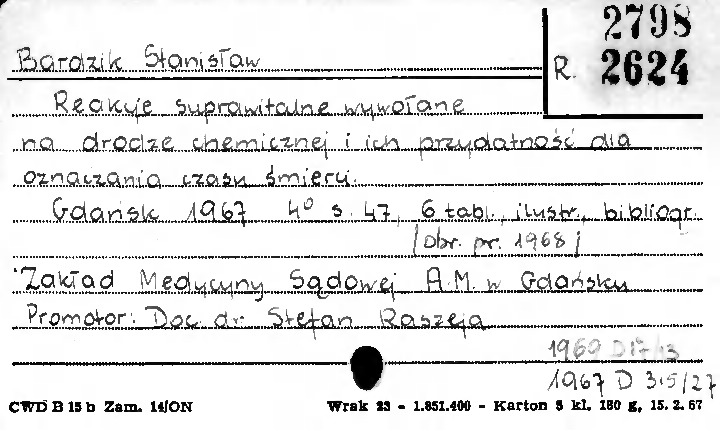 2798
Bardzik Stanisław R. 2624
Reakcje suprawitalne wywołane
na drodze chemicznej i ich przydatność dla
oznaczania czasu śmierci.
Gdańsk 1967 4° s. 47, 6 tabl., ilustr., bibliogr.
/obr. pr. 1968/
Zakład Medycyny Sądowej A.M. w Gdańsku
Promotor: Doc. dr. Stefan Raszeja
1969 D 17/13
1967 D 3.5/27
CWD B 15 b Zam. 14/ON Wrak 23 - 1.851.400 - Karton 5 kl. 180 g, 15. 2. 67